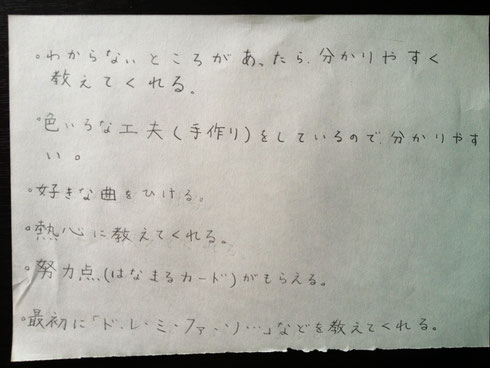 。わからないところがあったら、分かりやすく
教えてくれる。
。色いろな工夫(手作り)をしているので、分かりやす
い。
。好きな曲をひける。
。熱心に教えてくれる。
。努力点(はなまるカード)がもらえる。
。最初に「ド・レ・ミ・ファ・ソ…」などを教えてくれる。